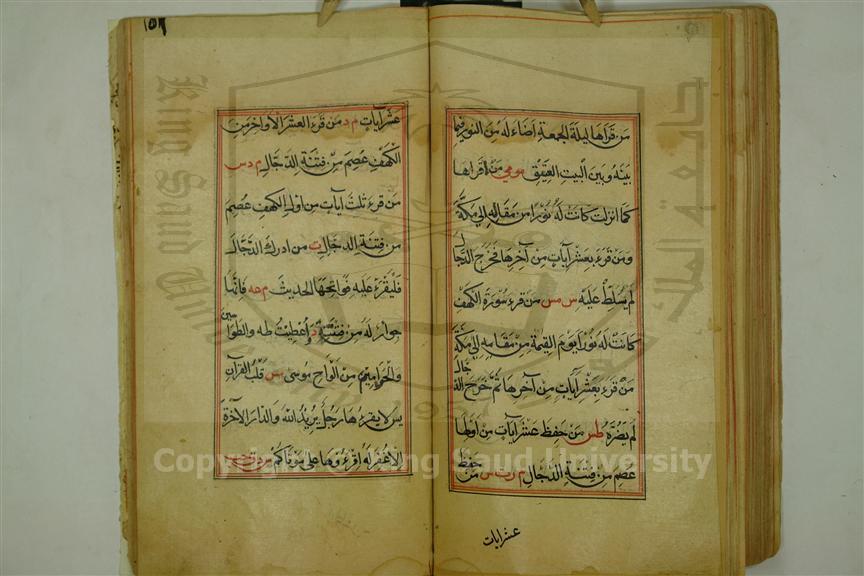 من قرأها ليلة الجمعة اضاء له من النور فيما
بينه وبين البيت العتيق مومي من قراها
كما انزلت كانت له نورا من مقامه الى مكة
ومن قرء بعشر آيات من آخرها فخرج الدجال
لم يسلط عليه س مس من قرء سورة الكهف
كانت له نورا يوم القيمة من مقامه الى مكة
من قرء بعشر آيات من آخرها ثم خرج الدجال
لم يضره طس من حفظ عشر آيات من اولها
عصم من فتنة الدجال م د ت س من حفظ
عشر ايات
عشر آيات م د من قرء العشر الأواخر من
الكهف عصم من فتنة الدجال م د س
من قرء ثلث آيات من اول الكهف عصم
من فتنة الدجال ت من ادرك الدجال
فليقرء عليه فواتحها الحديث م عه فانها
جوار له من فتنته د اعطيت طه والطواسين
والحواميم من الواح موسى مس قلب القرآن
يس لا يقرءها رجل يريد الله والدار الآخرة
الا غفر له اقرءوها على موتاكم س د ق
Copyright © King Saud University
King Saud University
1957